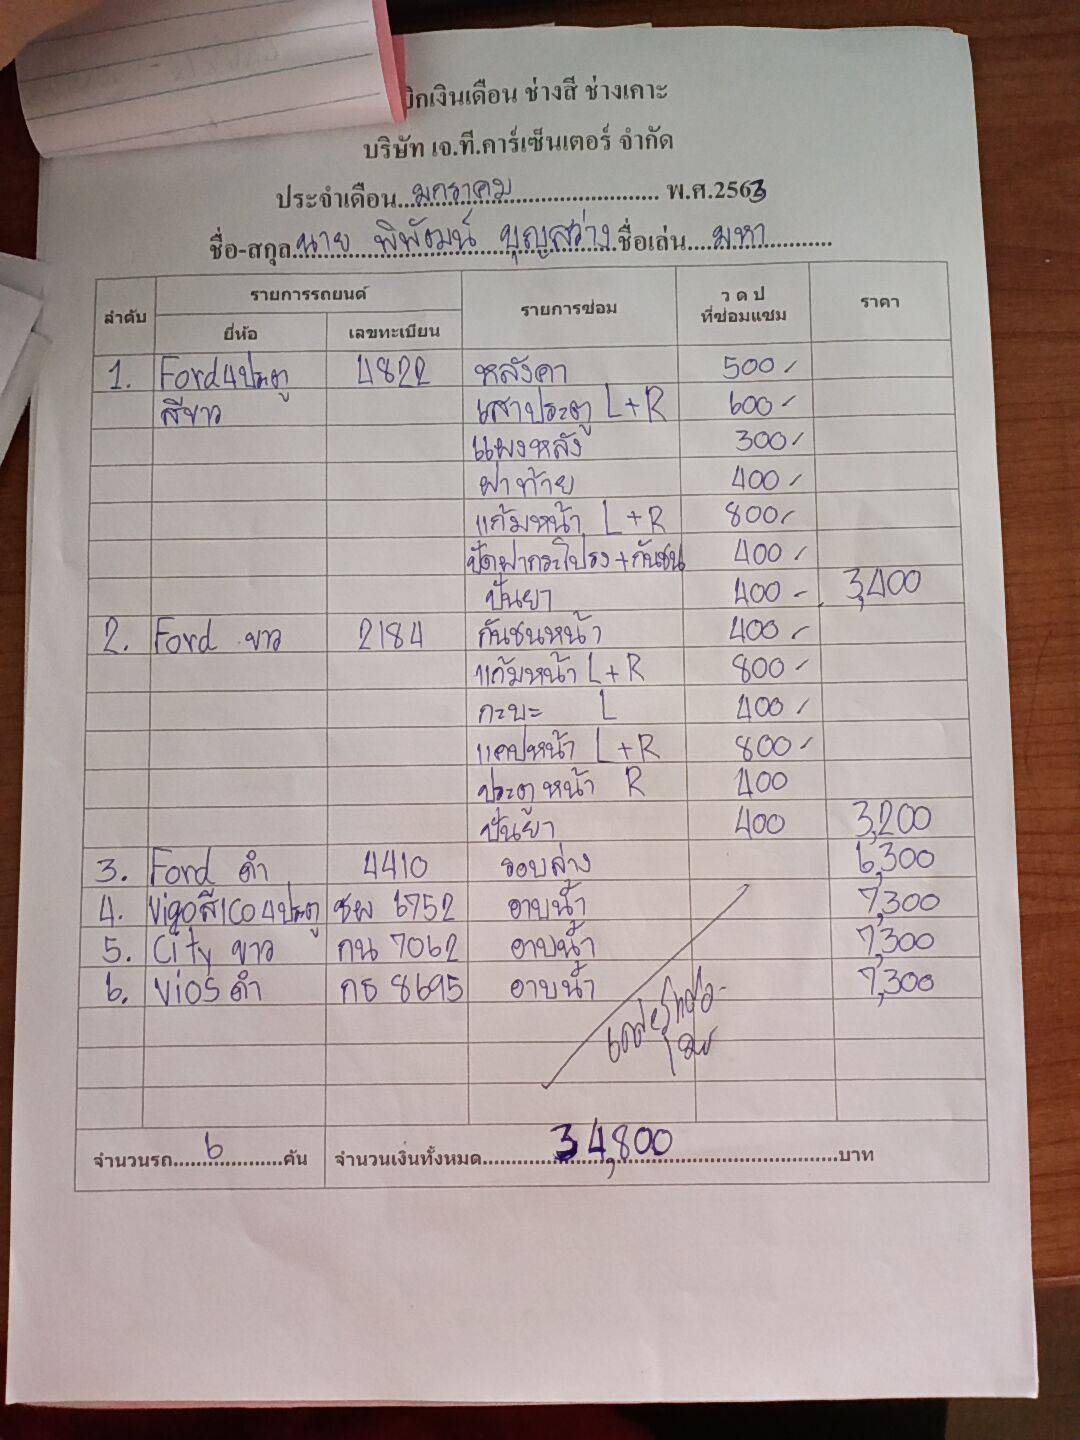 บิกเงินเดือน ช่างสี ช่างเคาะ
บริษัท เจ.ที.คาร์เซ็นเตอร์ จำกัด
ประจำเดือน...มกราคม... พ.ศ.2563
ชื่อ-สกุล...นาย พิพัฒน์ บุญสว่าง...ชื่อเล่น...มหา...
ลำดับ รายการรถยนต์ รายการซ่อม ว ด ป ที่ซ่อมแซม ราคา
ยี่ห้อ เลขทะเบียน
1. Ford 4ประตู 4822 หลังคา 500 -
สีขาว เสาประตู L+R 600 -
แผงหลัง 300 -
ฝาท้าย 400 -
แก้มหน้า L+R 800 -
ปัดฝากระโปรง+กันชน 400 -
ปั่นยา 400 - 3,400
2. Ford ขาว 2184 กันชนหน้า 400 -
แก้มหน้า L+R 800 -
กะบะ L 400 -
แคปหน้า L+R 800 -
ประตูหน้า R 400
ปั่นยา 400 3,200
3. Ford ดำ 4410 รอบล่าง 6,300
4. Vigo สี 4ประตู ชผ 6752 อาบน้ำ 7,300
5. City ขาว กน 7062 อาบน้ำ 7,300
6. Vios ดำ กธ 8695 อาบน้ำ 7,300
จำนวนรถ...6...คัน จำนวนเงินทั้งหมด...34,800...บาท